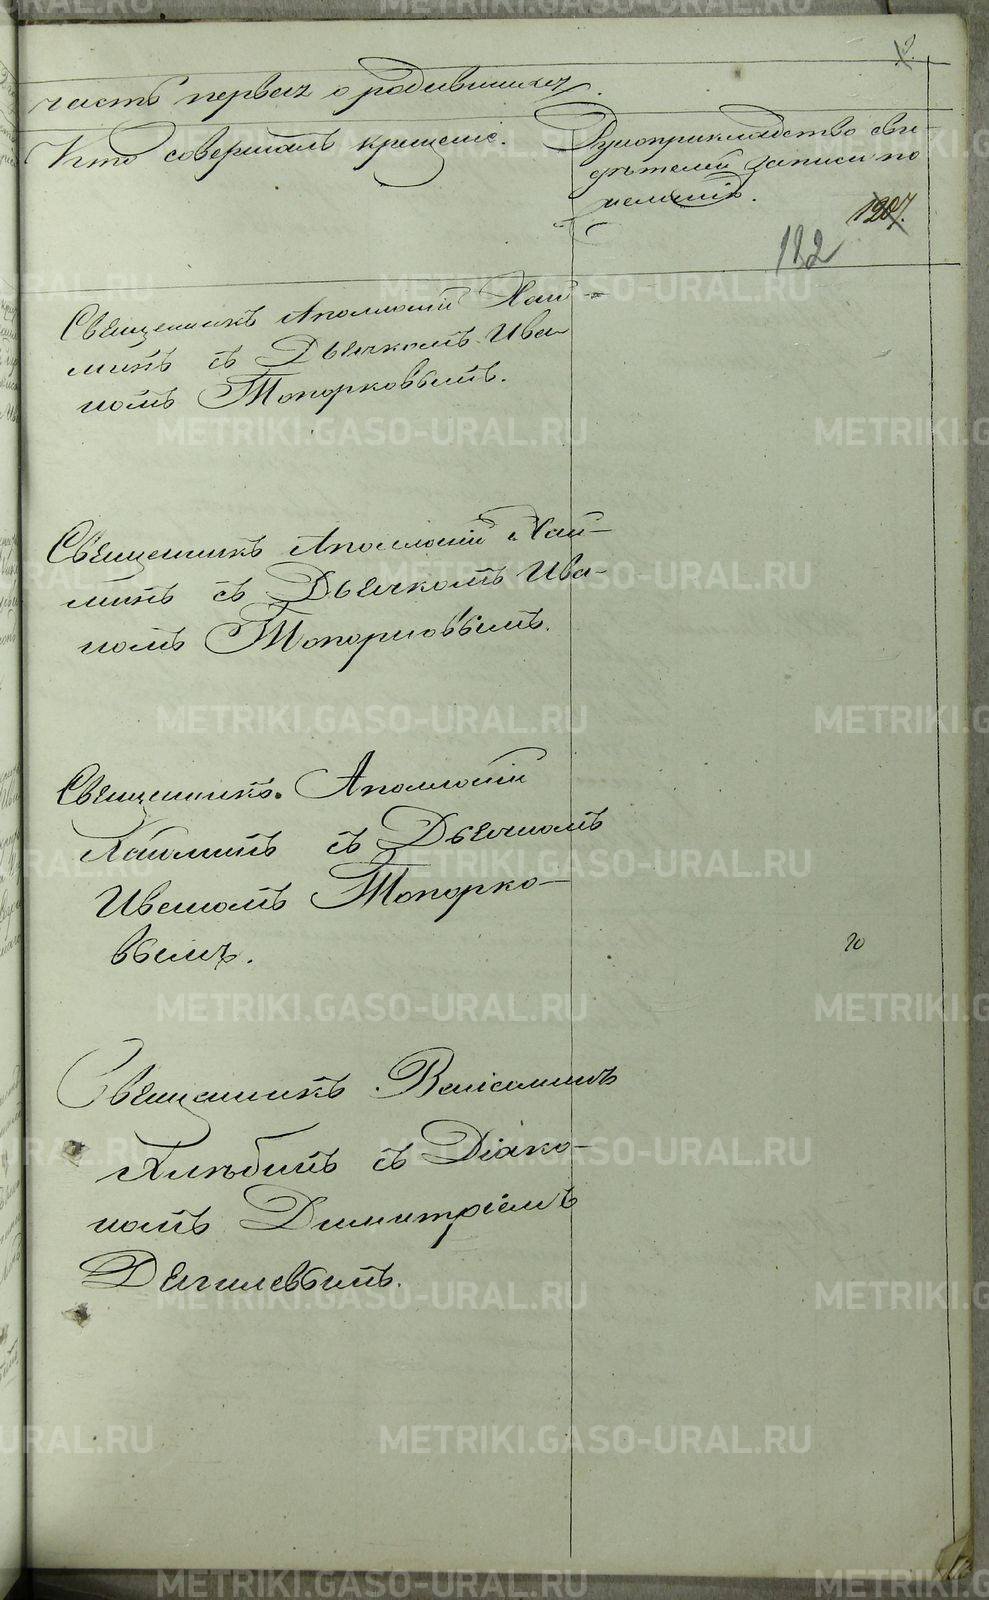 2.
часть первая о родившихся.
Кто совершалъ крещеніе.
Рукоприкладство сви-
дѣтелей записи по
желанію.
1207.
122
Священникъ Аполлоній Хай-
минъ съ Дьячкомъ Ива-
номъ Топорковымъ.
Священникъ Аполлоній Хай-
минъ съ Дьячкомъ Ива-
номъ Топорковымъ.
Священникъ Аполлоній
съ Дьячкомъ
Иваномъ Топорко-
вымъ.
Священникъ Веніаминъ
Хлѣбинъ съ Діако-
номъ Димитріемъ
Дягилевымъ.
METRIKI.GASO-URAL.RU